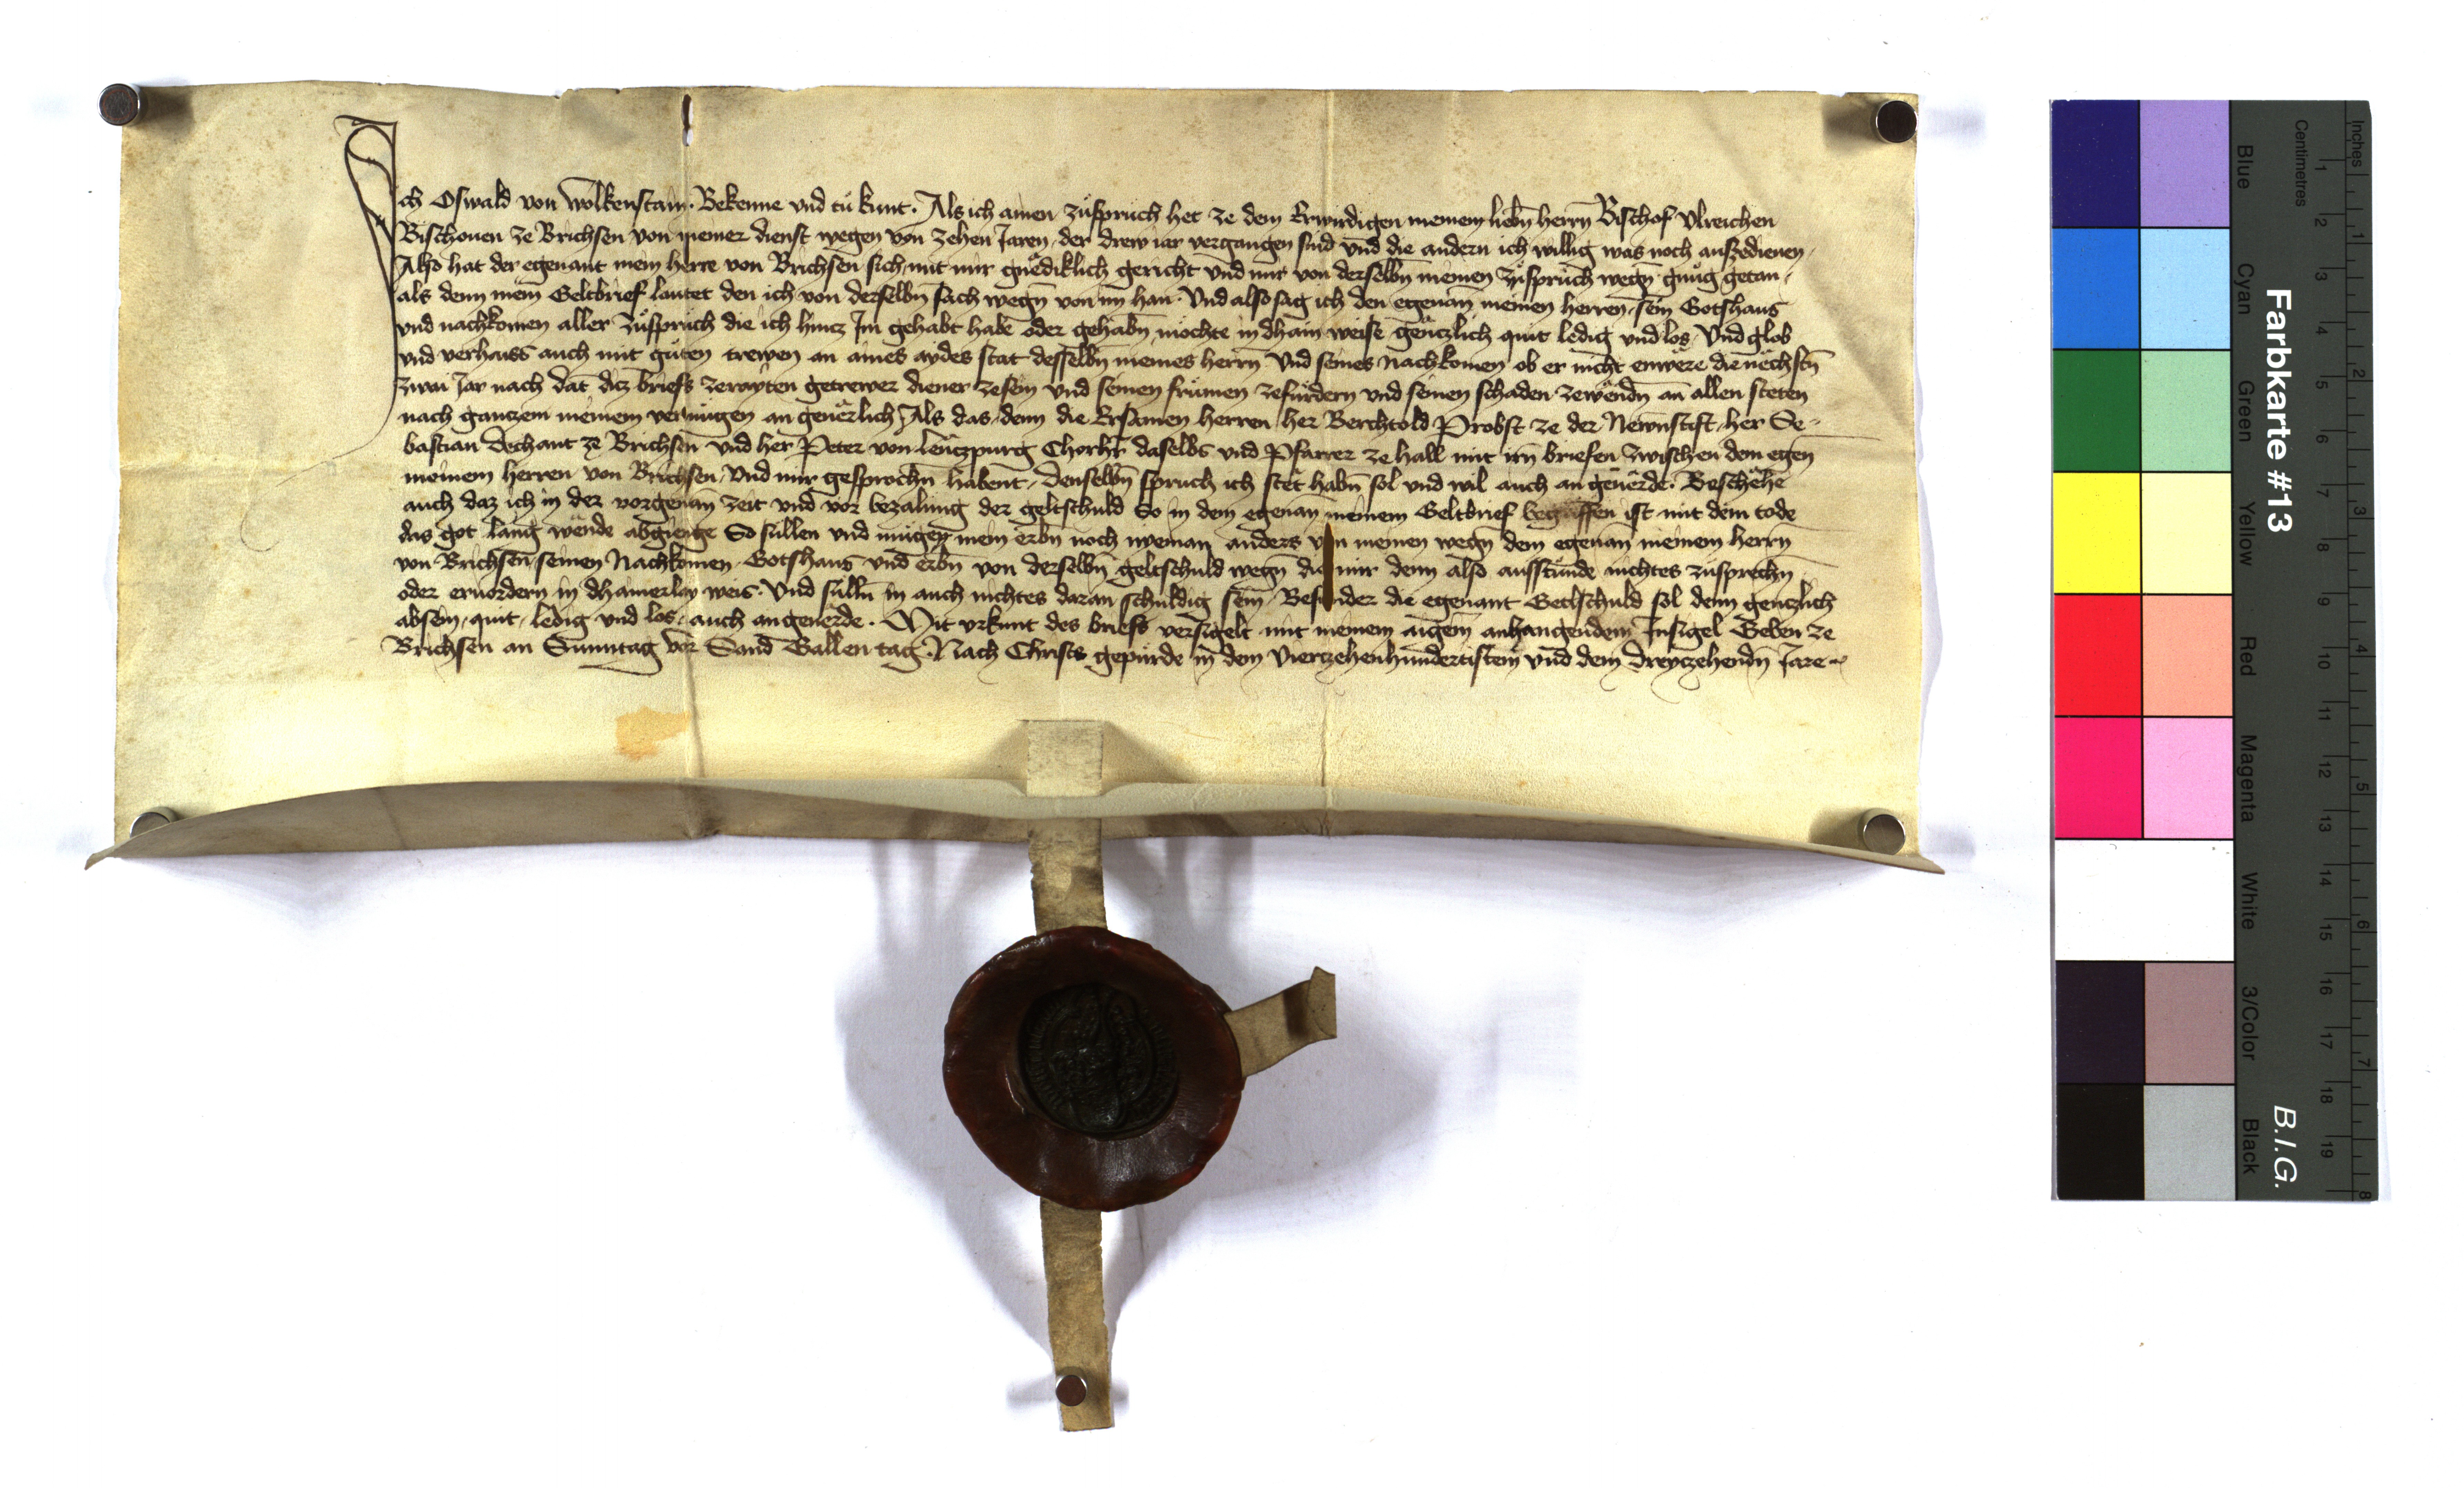 Ich Oswald von Wolkenstain. Bekenne vnd tů kunt. Als ich ainen zůspruch het ze dem Erwirdigen meinem liebn̄ herrn Bischof Vlreichen
Bischouen ze Brichsen von meiner dienst wegen von zehen Jaren, der drew iar vergangen sind vnd die andern ich willig was noch auszedienen,
Also hat der egenant mein herre von Brichsen sich mit mir gnědiklich gericht vnd mir von derselbn̄ meinen zůsprůch wegn̄ gnůg getan,
als denn mein Geltbrief lautet den ich von derselbn̄ sach wegn̄ von im han. Vnd also sag ich den egenan̄ meinen herren, sein Gotshaus
vnd nachkomen aller zůsprůch die ich hincz Im gehabt habe oder gehabn̄ möchte in dhain weise gěnczlich quit ledig vnd los, Vnd glob
vnd verhaiss auch mit gůten trewen an aines aydes stat desselbn̄ meines herrn vnd seines nachkomen ob er nicht enwěre die něchstn̄
zwai Jar nach dat dicz briefs zerayten getrewer diener zesein vnd seinen frůmen zefürdern vnd seinen schaden zewěndn̄ an allen steten
nach ganczem meinem vermůgen an geuěrlich, Als das denn die Ersamen herren, her Berchtold Probst ze der Newnstift, her Se-
bastian dechant ze Brichsen vnd her Peter von Lenczpurg Chorhr̄ daselbs vnd Pfarrer ze hall mit irn̄ briefen zwischen dem egen̄
meinem herren von Brichsen, vnd mir gesprochn̄ habent, denselbn̄ spruch ich stět habn̄ sol vnd wil auch an geuěrde. Beschěhe
auch daz ich in der vorgenan̄ zeit vnd vor bezalung der geltschuld So in dem egenan̄ meinem Geltbrief begriffen ist mit dem tode
das got lang wende abgienge So sullen vnd mügen mein erbn̄ noch nyeman anders von meinen wegn̄ dem egenan̄ meinem herrn
von Brichsen, seinen Nachkomen, Gotshaus vnd erbn̄ von derselbn̄ geltschuld wegn̄ die mir denn also ausstůnde nichtes zůsprechn̄
oder eruordern in dhainerlay weis. Vnd sülln̄ in auch nichtes daran schuldig sein, Besunder die egenant Geltschuld sol denn genczlich
absein, quit, ledig vnd los, auch an geuěrde. Mit vrkunt des briefs versigelt mit meinem aigem anhangendem Insigel Geben ze
Brichsen an Sunntag vor Sand Gallen tag. Nach Christs gepůrde in dem Vierczehenhundertistem vnd dem dreyczehendn̄ Jare
Farbkarte #13
B.I.G.
Blue
Cyan
Green
Yellow
Red
Magenta
White
3/Color
Black
Centimetres
1 2 3 4 5 6 7 8 9 10 11 12 13 14 15 16 17 18 19
Inches
1 2 3 4 5 6 7 8